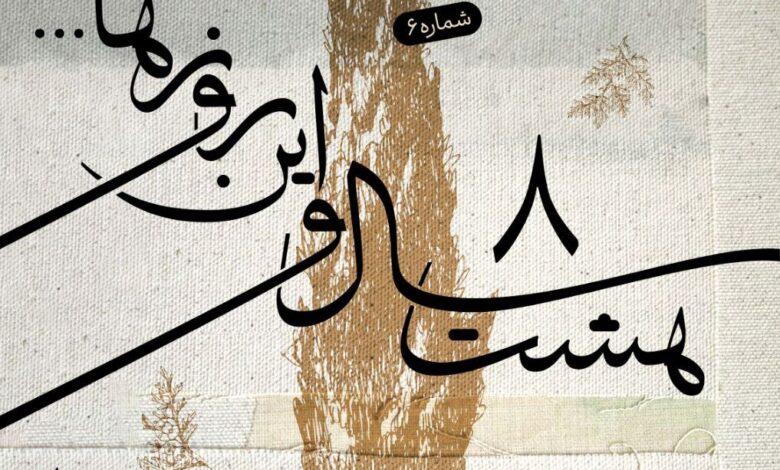 شماره ۶
۸
هشت سال و
این روزها...